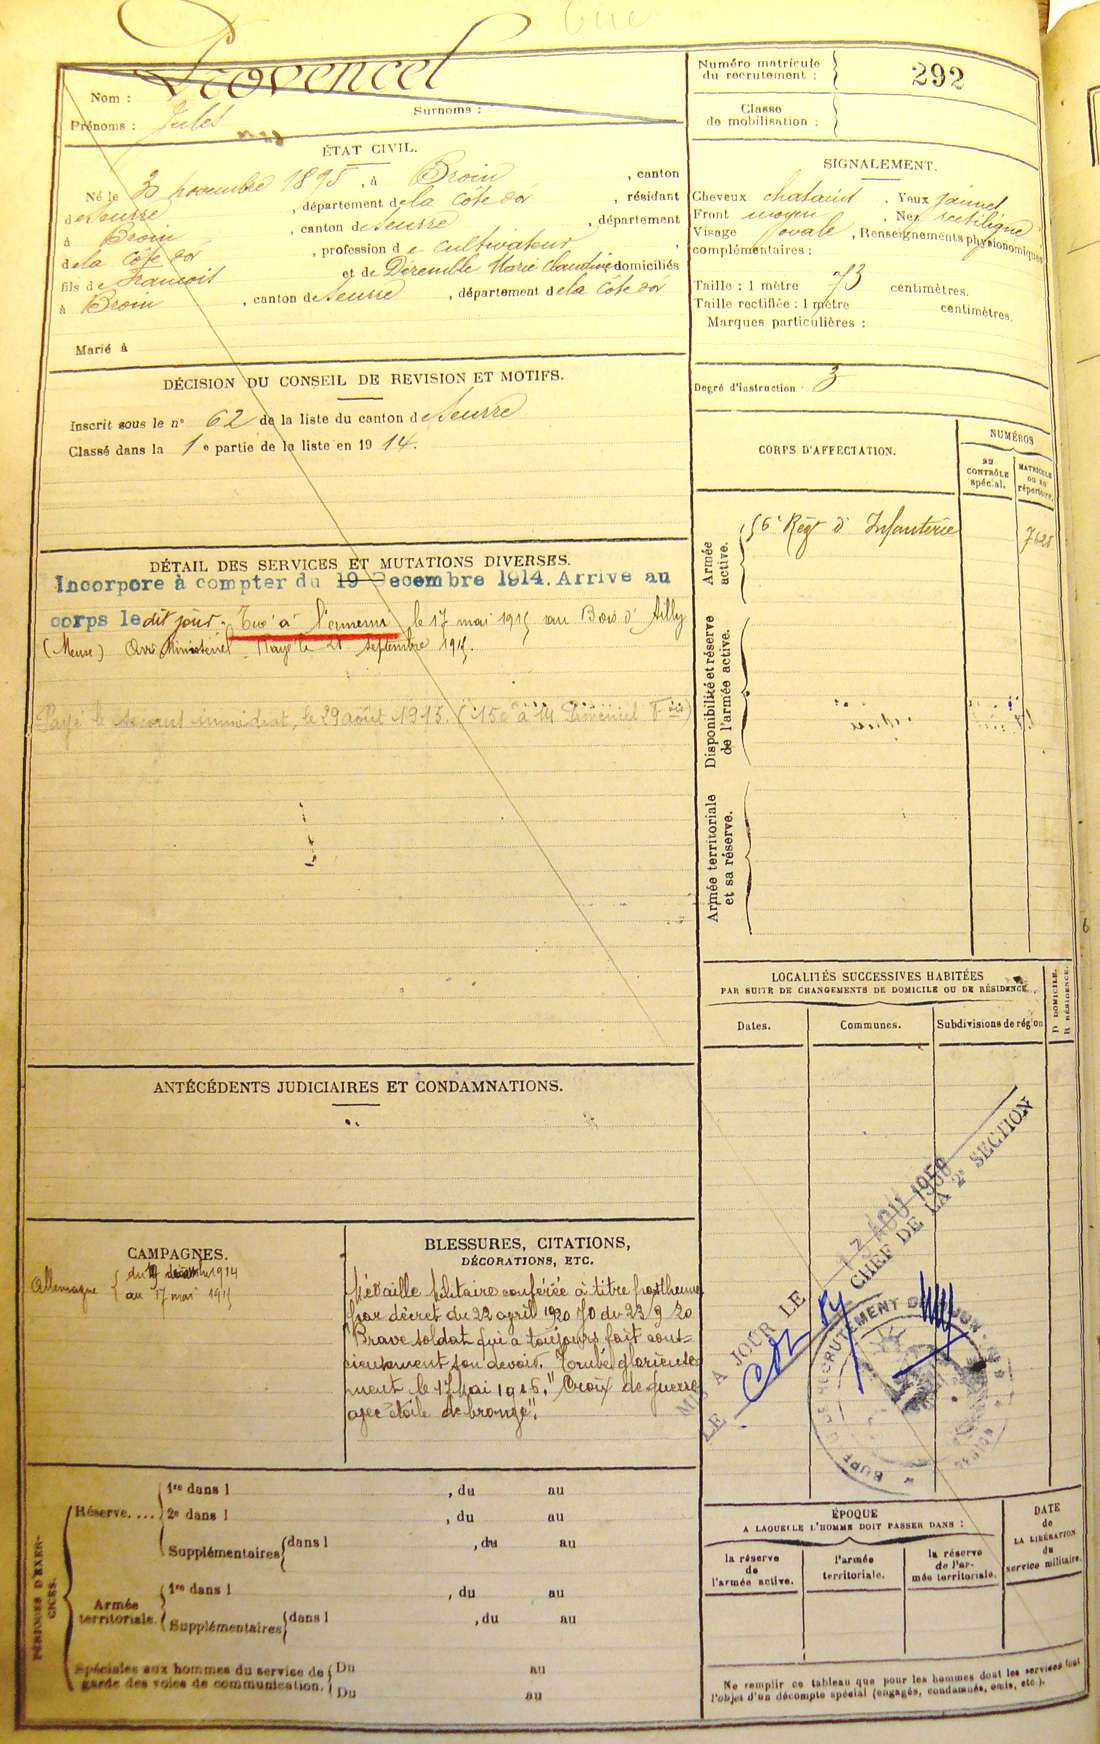 Tué
Nom : Provencel
Prénoms : Jules Surnoms :
Numéro matricule du recrutement : 292
Classe de mobilisation :
ÉTAT CIVIL.
Né le novembre 1895, à Broin, canton
de Seurre, département de la Côte d'or, résidant
à Broin, canton de Seurre, département
de la Côte d'or, profession de cultivateur,
fils de François et de Deremble Marie Claudine domiciliés
à Broin, canton de Seurre, département de la Côte d'or
Marié à
SIGNALEMENT.
Cheveux chatains. Yeux jaunes
Front moyen, Nez rectiligne
Visage ovale, Renseignements physionomiques
complémentaires :
Taille : 1 mètre 73 centimètres.
Taille rectifiée : 1 mètre centimètres.
Marques particulières :
Degré d'instruction 3
DÉCISION DU CONSEIL DE REVISION ET MOTIFS.
Inscrit sous le n° 62 de la liste du canton de Seurre
Classé dans la 1e partie de la liste en 1914.
CORPS D'AFFECTATION.
NUMÉROS
AU CONTRÔLE spécial.
MATRICULE OU AU répertoire.
Armée active.
56e Régt d'Infanterie 7628
Disponibilité et réserve de l'armée active.
Armée territoriale et sa réserve.
DÉTAIL DES SERVICES ET MUTATIONS DIVERSES.
Incorporé à compter du 19 Decembre 1914. Arrivé au
corps le dit jour. Tué à l'ennemi le 17 mai 1915 au Bois d'Ailly
(Meuse) Avis Ministériel Rayé le 21 septembre 1915.
Payé le secours immédiat le 29 août 1915. (150 à M. Provencel Fois)
LOCALITÉS SUCCESSIVES HABITÉES
PAR SUITE DE CHANGEMENTS DE DOMICILE OU DE RÉSIDENCE.
Dates. Communes. Subdivisions de région
D DOMICILE.
R RÉSIDENCE.
ANTÉCÉDENTS JUDICIAIRES ET CONDAMNATIONS.
CAMPAGNES.
Allemagne du 19 décembre 1914
au 17 mai 1915
BLESSURES, CITATIONS,
DÉCORATIONS, ETC.
Médaille Militaire conférée à titre posthume
par décret du 22 avril 1920 JO du 23/9/20
"Brave soldat qui a toujours fait cons-
ciencement son devoir. Tombé glorieuse
ment le 17 Mai 1915." Croix de guerre
avec étoile de bronze".
MIS A JOUR LE 13 AOU 1958
LE CHEF DE LA 2e SECTION
BUREAU DE RECRUTEMENT DE DIJON
PÉRIODES D'EXERCICES.
Réserve....
1re dans l , du au
2e dans l , du au
Supplémentaires dans l , du au
Armée territoriale.
1re dans l , du au
Supplémentaires dans l , du au
Spéciales aux hommes du service de garde des voies de communication.
Du au
Du au
ÉPOQUE
A LAQUELLE L'HOMME DOIT PASSER DANS :
la réserve de l'armée active.
l'armée territoriale.
la réserve de l'armée territoriale.
DATE de LA LIBÉRATION du service militaire.
Ne remplir ce tableau que pour les hommes dont les services font
l'objet d'un décompte spécial (engagés, condamnés, omis, etc.).